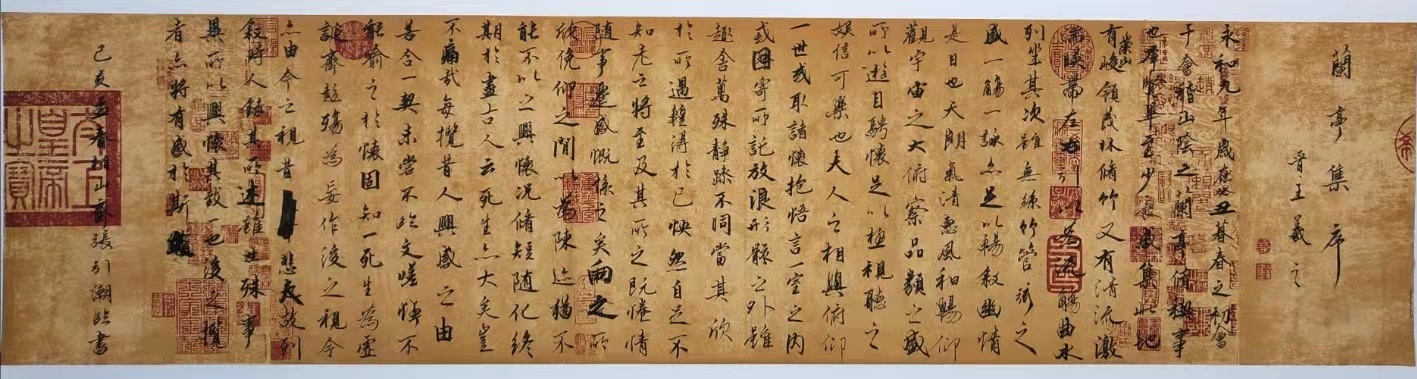 蘭亭集序
晉王羲之
永和九年歲在癸丑暮春之初會
于會稽山陰之蘭亭脩禊事
也羣賢畢至少長咸集此地
有崇山峻領茂林脩竹又有清流激
湍暎帶左右引以為流觴曲水
列坐其次雖無絲竹管弦之
盛一觴一詠亦足以暢敘幽情
是日也天朗氣清惠風和暢仰
觀宇宙之大俯察品類之盛
所以遊目騁懷足以極視聽之
娛信可樂也夫人之相與俯仰
一世或取諸懷抱悟言一室之內
或因寄所託放浪形骸之外雖
趣舍萬殊靜躁不同當其欣
於所遇暫得於己怏然自足不
知老之將至及其所之既惓情
隨事遷感慨係之矣向之所
欣俛仰之間以為陳迹猶不
能不以之興懷況脩短隨化終
期於盡古人云死生亦大矣豈
不痛哉每攬昔人興感之由
若合一契未嘗不臨文嗟悼不
能喻之於懷固知一死生為虛
誕齊彭殤為妄作後之視今
亦由今之視昔悲夫故列
敘時人錄其所述雖世殊事
異所以興懷其致一也後之攬
者亦將有感於斯文
己亥孟春張引潮臨書